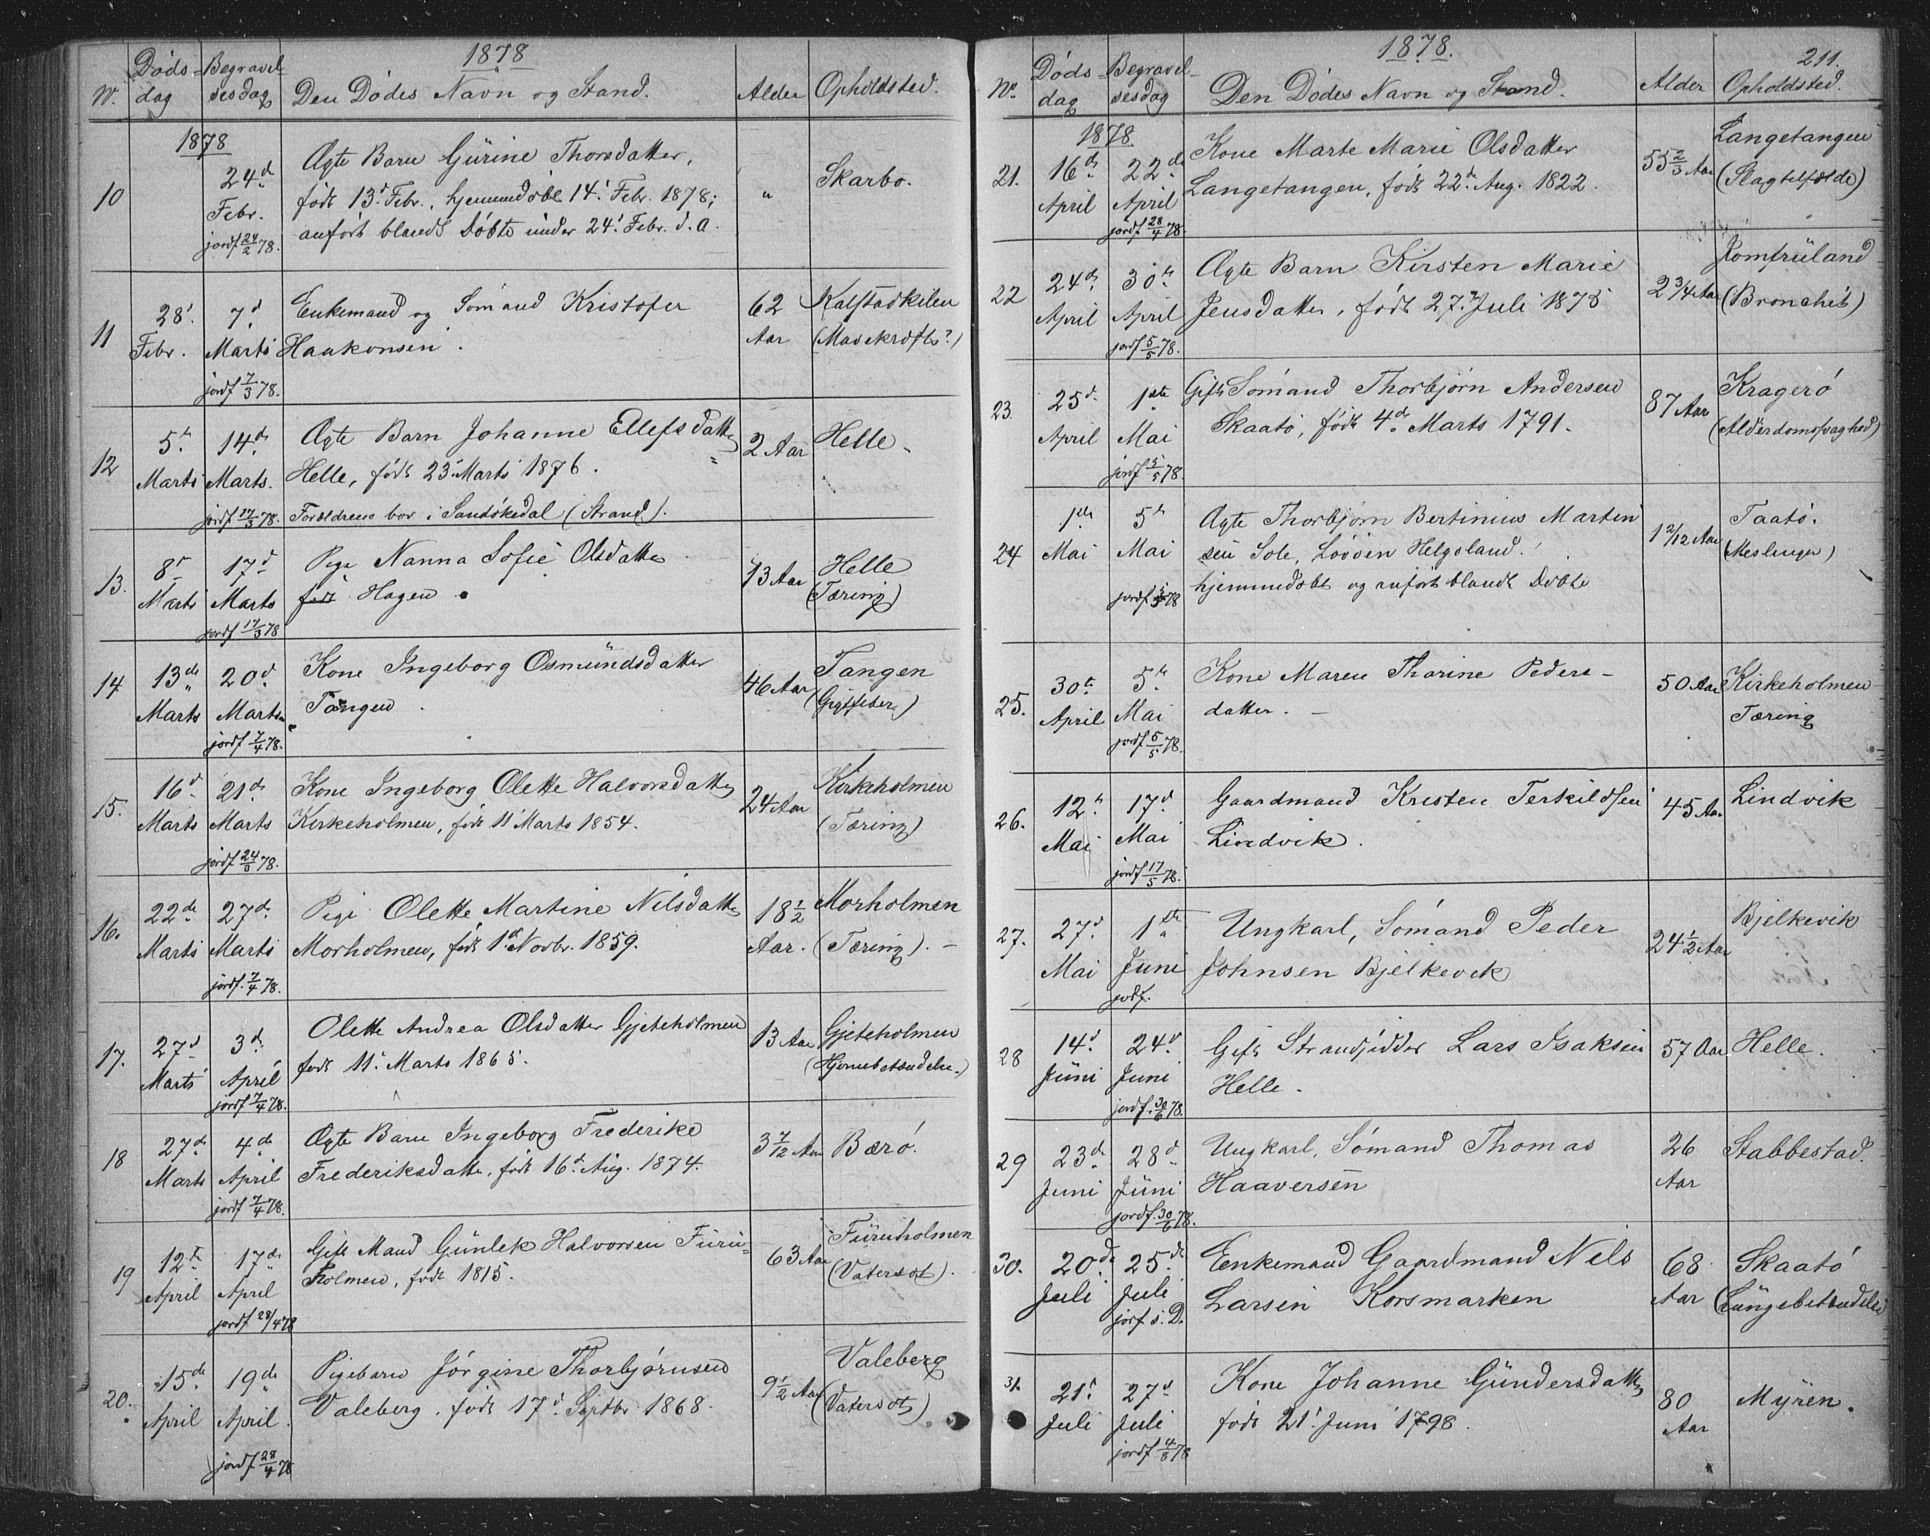 1878
Døds- Begravel-
N. dag sesdag Den Dødes Navn og Stand. Alder Opholdsted.
1878
10 24d Febr. jordf 24/2 78. Ægte Barn Gürine Thorsdatter, " Skarbo.
født 13d Febr., hjemmedøbt 14' Febr. 1878;
anført blandt Døbte under 24' Febr. d. A.
11 28' Febr. 7d Marts jordf 7/3 78. Enkemand og Sømand Kristofer 62 Aar Kalstadkilen
Haakonsen.
12 5t Marts 14d Marts. jordf 17/3 78. Ægte Barn Johanne Ellefsdatter 2 Aar Helle.
Helle, født 23' Marts 1876.
Forældrene bor i Sandökedal (Strand).
13. 8d Marts 17d Marts jordf 17/3 78 Pige Nanna Sofie Olsdatter Helle
født Hagen (Tæring)
14. 13de Marts 20d Marts jordf 7/4 78. Kone Ingeborg Osmündsdatter 46 Aar Tangen
Tangen.
15. 16d Marts 21d Marts jordf 24/3 78. Kone Ingeborg Olette Halvorsdatter 24 Aar Kirkeholmen
Kirkeholmen, født 11' Marts 1854. (Tæring)
16. 22de Marts 27d Marts jordf. 7/4 78. Pige Olette Martine Nilsdatter 18 1/2 Aar. Morholmen
Morholmen, født 1d Novbr. 1859. (Tæring).
17. 27d Marts 3d April jordf 7/4 78. Olette Andrea Olsdatter Gjeteholmen 13 Aar Gjeteholmen
født 11' Marts 1865. (Hjernebetændelse.)
18 27de Marts 4de April jordf 7/4 78. Ægte Barn Ingeborg Frederike 3 7/12 Aar Bærø.
Frederiksdatter, født 16d Aug. 1874.
19 12t April 17de April jordf 28/4 78 Gift Mand Günlek Halvorsen Füru- 63 Aar Füruholmen
holmen, født 1815. (Vatersot).
20. 15de April 19de April. jordf 28/4 78 Pigebarn Jörgine Thorbjørnsen 9 1/2 Aar Valeberg
Valeberg, født 17d Septbr 1868. (Vatersot)
1878. 211.
Døds Begravel-
No. dag sesdag Den Dødes Navn og Stand. Alder Opholdsted.
1878.
21. 16d April 22de April jordf 28/4 78. Kone Marte Marie Olsdatter 55 2/3 Aar Langetangen
Langetangen, født 22de Aug. 1822. (Slagtilfælde)
22 24de April 30te April jordf 5/5 78. Ægte Barn Kirsten Marie 2 3/4 Aar Jomfrüland
Jensdatter, født 27' Juli 1875 (Bronchit)
23. 25d April 1ste Mai jordf 5/5 78. Gift Sømand Thorbjørn Andersen 87 Aar Kragerö
Skaatø, født 4d Marts 1791. (Alderdomssvaghed)
24 1ste Mai 5te Mai jordf 5/5 78 Ægte Thorbjørn Bertinius Martin 1 2/12 Aar Taatø.
sen Sole, Helgeland. (Meslinger)
hjemmedøbt og anført blandt Døbte
25. 30te April 5te Mai jordf 5/5 78. Kone Maren Tharine Peders- 50 Aar Kirkeholmen
datter. Tæring
26. 12te Mai 17d Mai jordf 17/5 78. Gaardmand Kristen Terkildsen 45 Aar Lindvik
Lindvik.
27. 27d Mai 1ste Juni jordf. Ungkarl, Sømand Peder 24 1/2 Aar Bjelkevik
Johnsen Bjelkevik
28 14d Jüni 24d Juni jordf. 30/6 78. Gift Strandsidder Lars Isaksen 57 Aar Helle.
Helle.
29 23d Juni 28d Jüni jordf. 30/6 78. Ungkarl, Sømand Thomas 26 Aar Stabbestad.
Haaversen
30. 20de Juli 25de Juli jorf s. D. Enkemand Gaardmand Nils 68 Aar Skaatø
Larsen Korsmarken (Lüngebetændelse)
31. 21' Juli 27d Juli jordf 4/8 78 Kone Johanne Gündersdatter 80 Aar Myren.
født 21' Juni 1798.